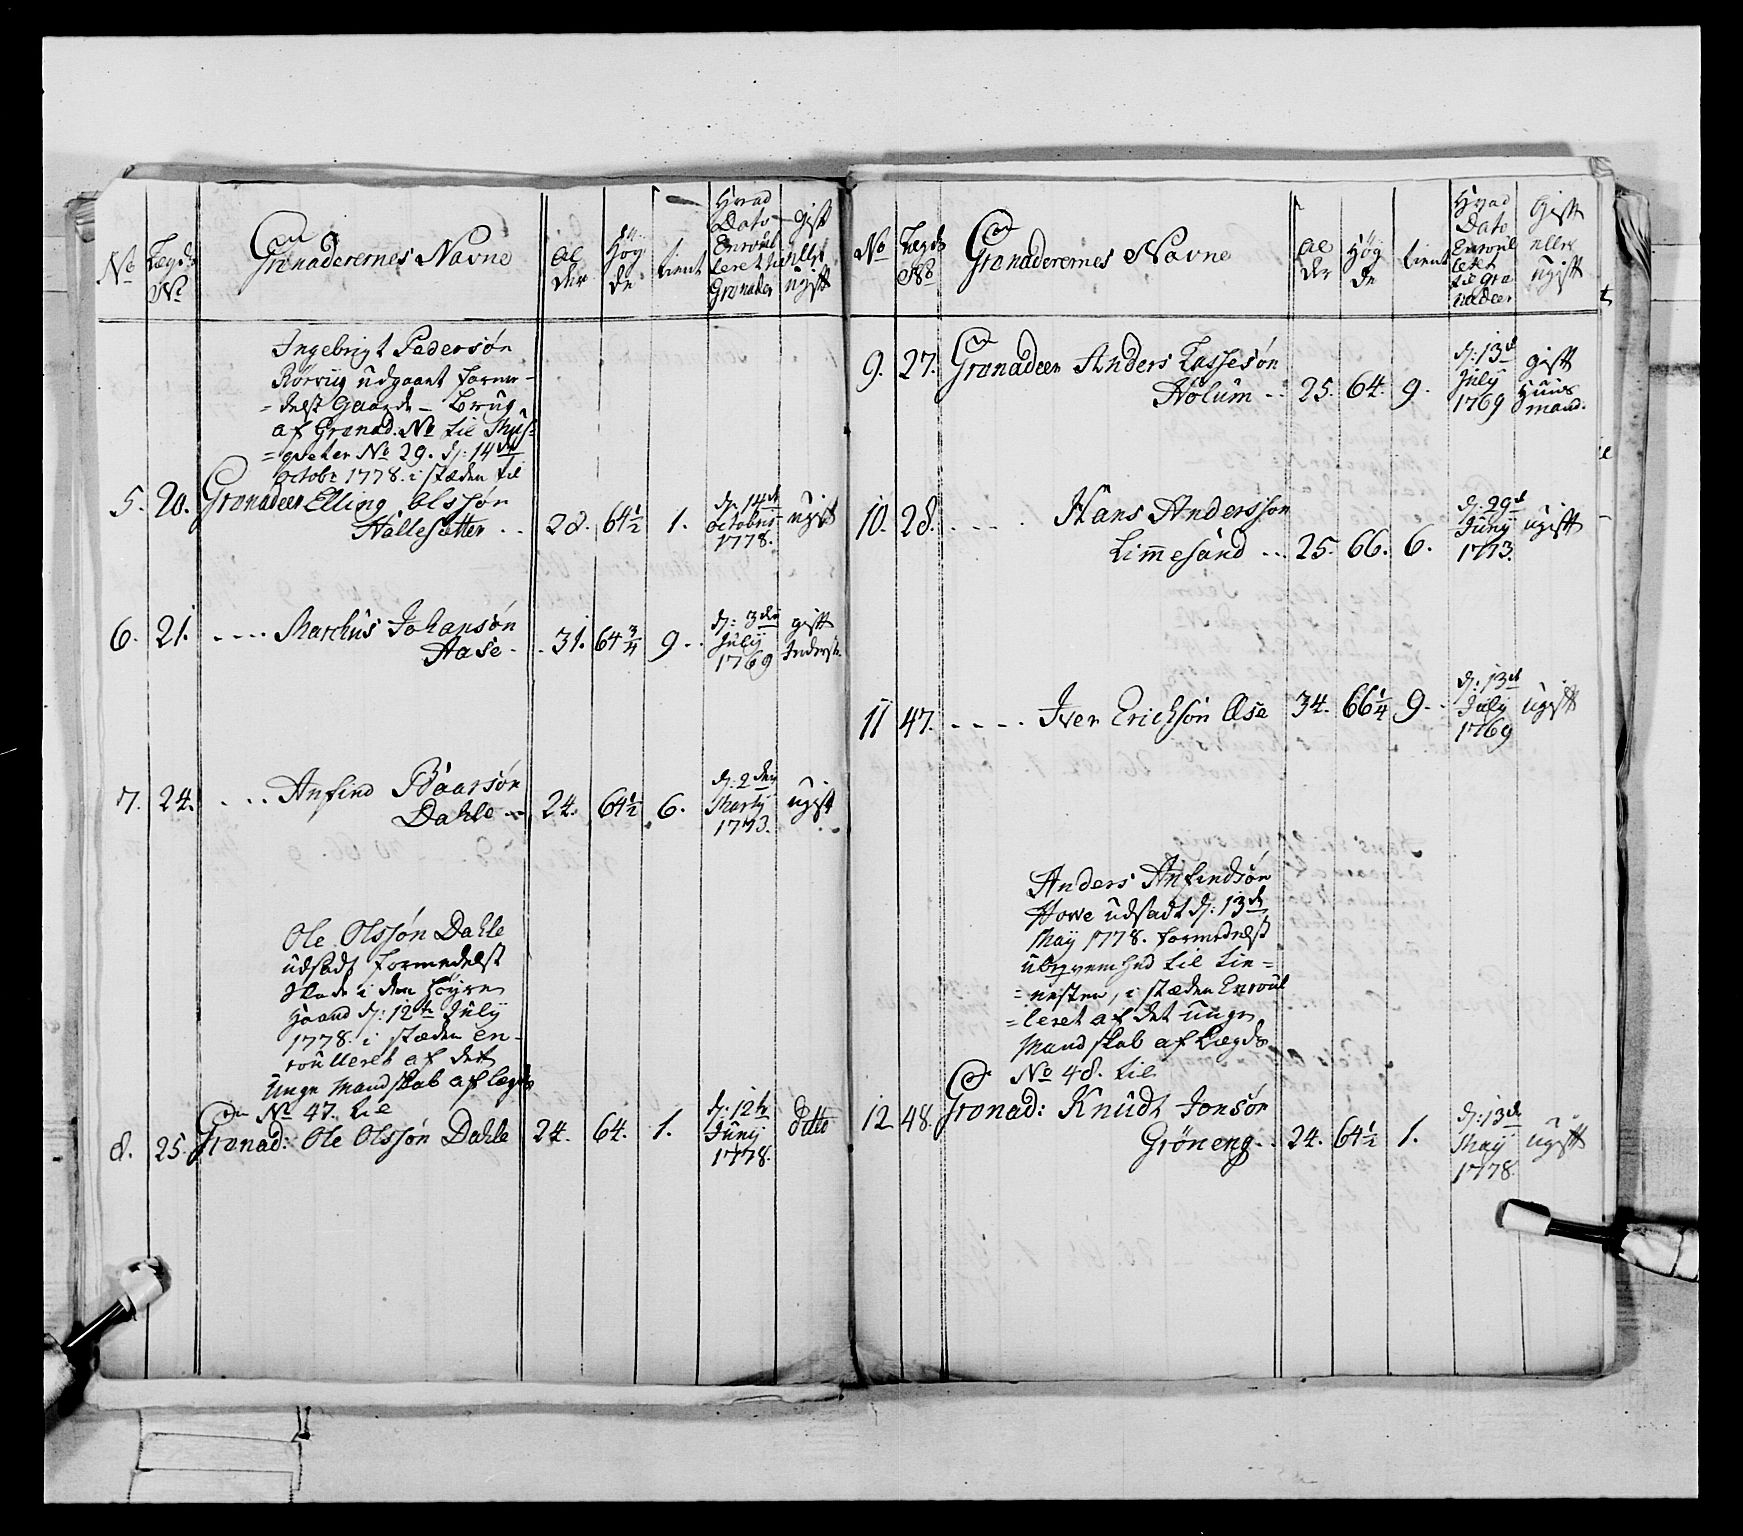 No
Lægds
No
Grenaderernes Navne
Al
der
Høg
de
tient
Hvad
Dato
Enroul
leret til
Grenader
Gift
eller
ugift
Ingebrigt Pedersøn
Rørviig udgaaet forme-
=delst Gaards-Brug
af Grenad. No til Mus=
=qveter No 29. d: 14de
octobr 1778. i stæden til
5. 20. Grenadeer Elling Olssøn
Hallesætter .. 28. 64½ 1. d: 14de octobris 1778. ugift
6. 21. .... Marchus Johansøn
Aase .. 31. 64¾ 9.. d: 3die July 1769 gift Inderst
7. 24. .... Anfind Baarsøn
Dahle .. 24. 64½ 6. d: 2den Marty 1773. ugift
Ole Olssøn Dahle
udsadt formedelst
skade i den høyre
Haand d: 12te July
1778. i stæden en-
roulleret af det
Unge Mandskab af Lægds
No 47. til
8. 25. Grenad: Ole Olssøn Dahle 24. 64. 1. d: 12te Juny 1778. ditto
No
Lægds
No
Grenaderernes Navne
Al
der
Høg
de
tient
Hvad
Dato
Enroul
leret
til Gre
nadeer
Gift
eller
ugift
9. 27. Grenadeer Anders Lassesøn
Holum .. 25. 64. 9. d: 13de July 1769 gift Huus mand.
10. 28. .... Hans Anderssøn
Limmesand .. 25. 66. 6. d: 29de Juny 1773. ugift
11 47. .... Iver Erichsøn Øse 34. 66¼ 9.. d: 13de July 1769 ugift
Anders Anfindsøn
Howe udsadt d: 13de
May 1778. formedelst
ubeqvemhed til tie=
=nesten, i stæden Enroul
=leret af det unge
Mandskab af Lægds
No 48. til
12 48. Grenad: Knudt Jonsøn
Grøneng. 24. 64½ 1. d: 13de May 1778. ugift